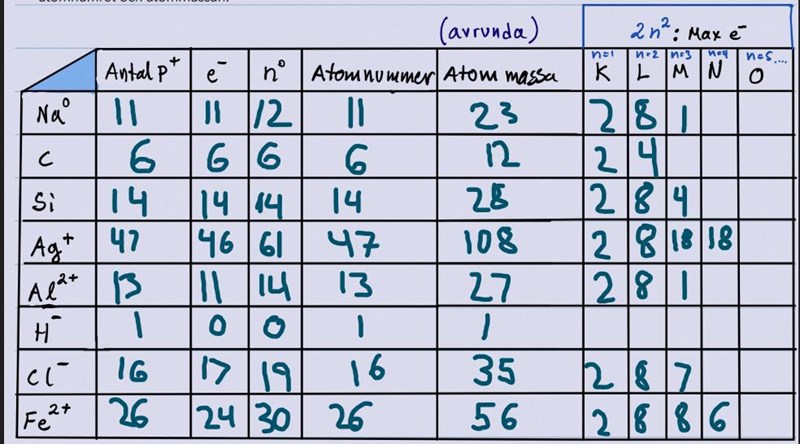 atomnumret och atommassan.
(avrunda) 2n²: Max e⁻
Antal p⁺ e⁻ n⁰ Atomnummer Atommassa n=1 K n=2 L n=3 M n=4 N n=5.... O
Na⁰ 11 11 12 11 23 2 8 1
C 6 6 6 6 12 2 4
Si 14 14 14 14 28 2 8 4
Ag⁺ 47 46 61 47 108 2 8 18 18
Al²⁺ 13 11 14 13 27 2 8 1
H⁻ 1 0 0 1 1
Cl⁻ 16 17 19 16 35 2 8 7
Fe²⁺ 26 24 30 26 56 2 8 8 6